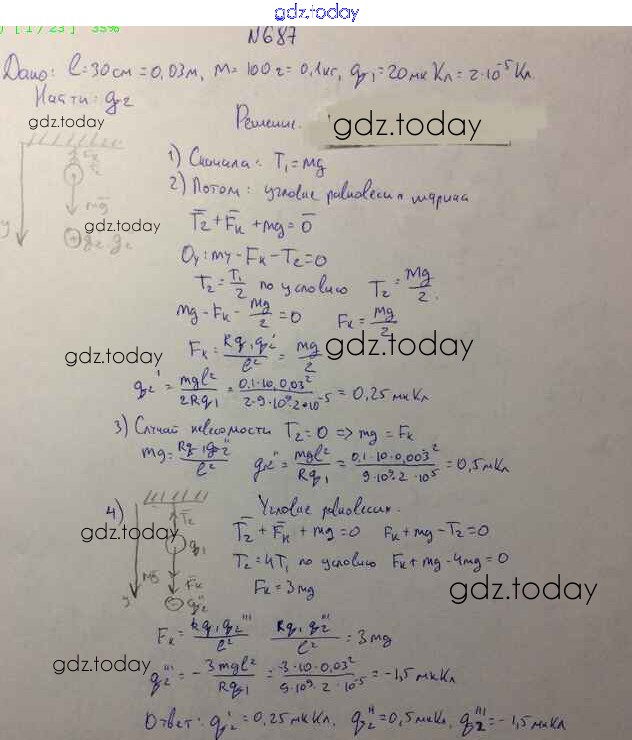 gdz.today
) [ 1 / 23 ] 35%
N687
Дано: l=30см=0,03м, m=100г=0,1кг, q₁=20мкКл=2·10⁻⁵Кл.
Найти: q₂
Решение.
gdz.today
gdz.today
1) Сначала: T₁=mg
2) Потом: условие равновесия шарика
T̅₂+F̅к+mg=0̅
gdz.today
Oy: mg-Fк-T₂=0
T₂=T₁/2 по условию T₂=mg/2.
mg-Fк-mg/2=0 Fк=mg/2
Fк=kq₁q₂'/l²=mg/2
gdz.today
gdz.today
q₂'=mgl²/2kq₁=0,1·10·0,03²/2·9·10⁹·2·10⁻⁵=0,25мкКл
3) Случай невесомости T₂=0 => mg=Fк
mg=kq₁q₂''/l² q₂''=mgl²/kq₁=0,1·10·0,003²/9·10⁹·2·10⁵=0,5мКл
4)
Условие равновесия.
gdz.today
T̅₂+F̅к+mg=0 Fк+mg-T₂=0
T₂=4T₁ по условию Fк+mg-4mg=0
Fк=3mg
gdz.today
Fк=kq₁q₂'''/l² kq₁q₂'''/l²=3mg
gdz.today
q₂'''=-3mgl²/kq₁=-3·10·0,03²/9·10⁹·2·10⁻⁵=-1,5мкКл
Ответ: q₂'=0,25мкКл, q₂''=0,5мкКл, q₂'''=-1,5мкКл